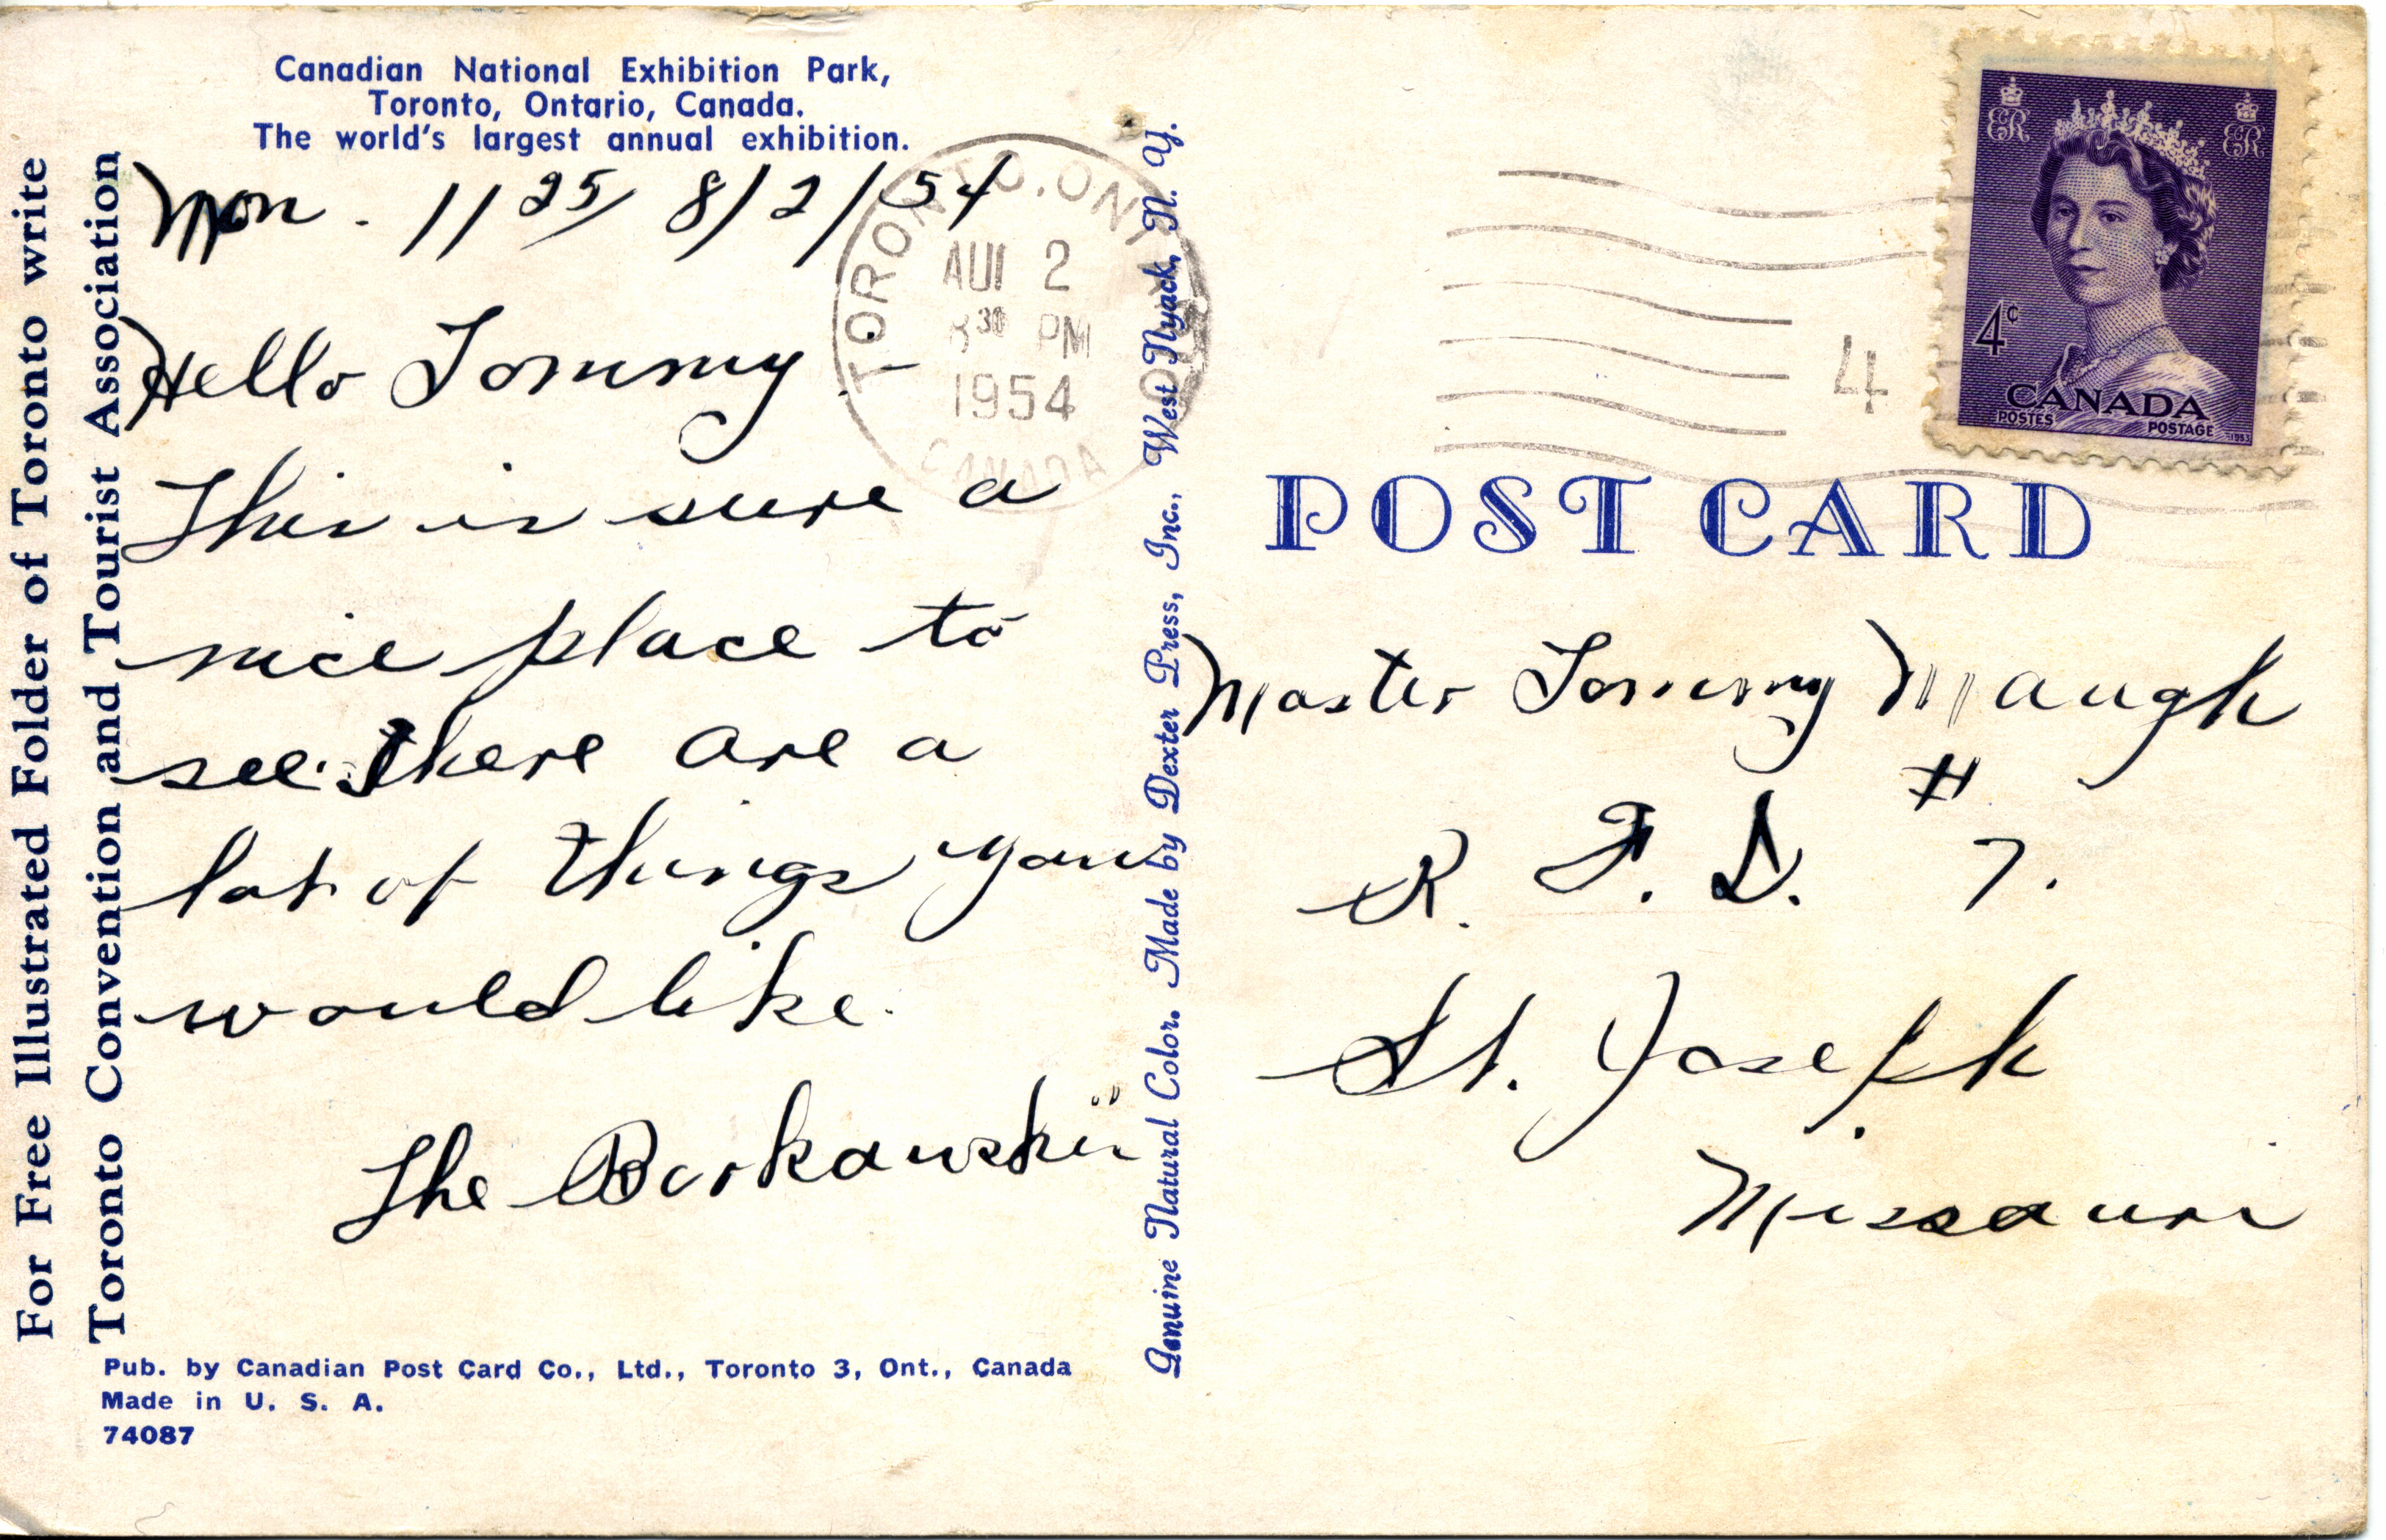 Canadian National Exhibition Park,
Toronto, Ontario, Canada.
The world's largest annual exhibition.
For Free Illustrated Folder of Toronto write
Toronto Convention and Tourist Association
Mon. 11 25 8/2/54
Hello Tommy -
This is sure a
nice place to
see. There are a
lot of things you
would like.
The
Pub. by Canadian Post Card Co., Ltd., Toronto 3, Ont., Canada
Made in U. S. A.
74087
Genuine Natural Color. Made by Dexter Press, Inc., West Nyack, N. Y.
TORONTO, ONT.
2
30 PM
1954
CANADA
4
4¢
CANADA
POSTES POSTAGE
1953
POST CARD
Master Tommy Maugh
R. F. D. # 7.
St. Joseph
Missouri